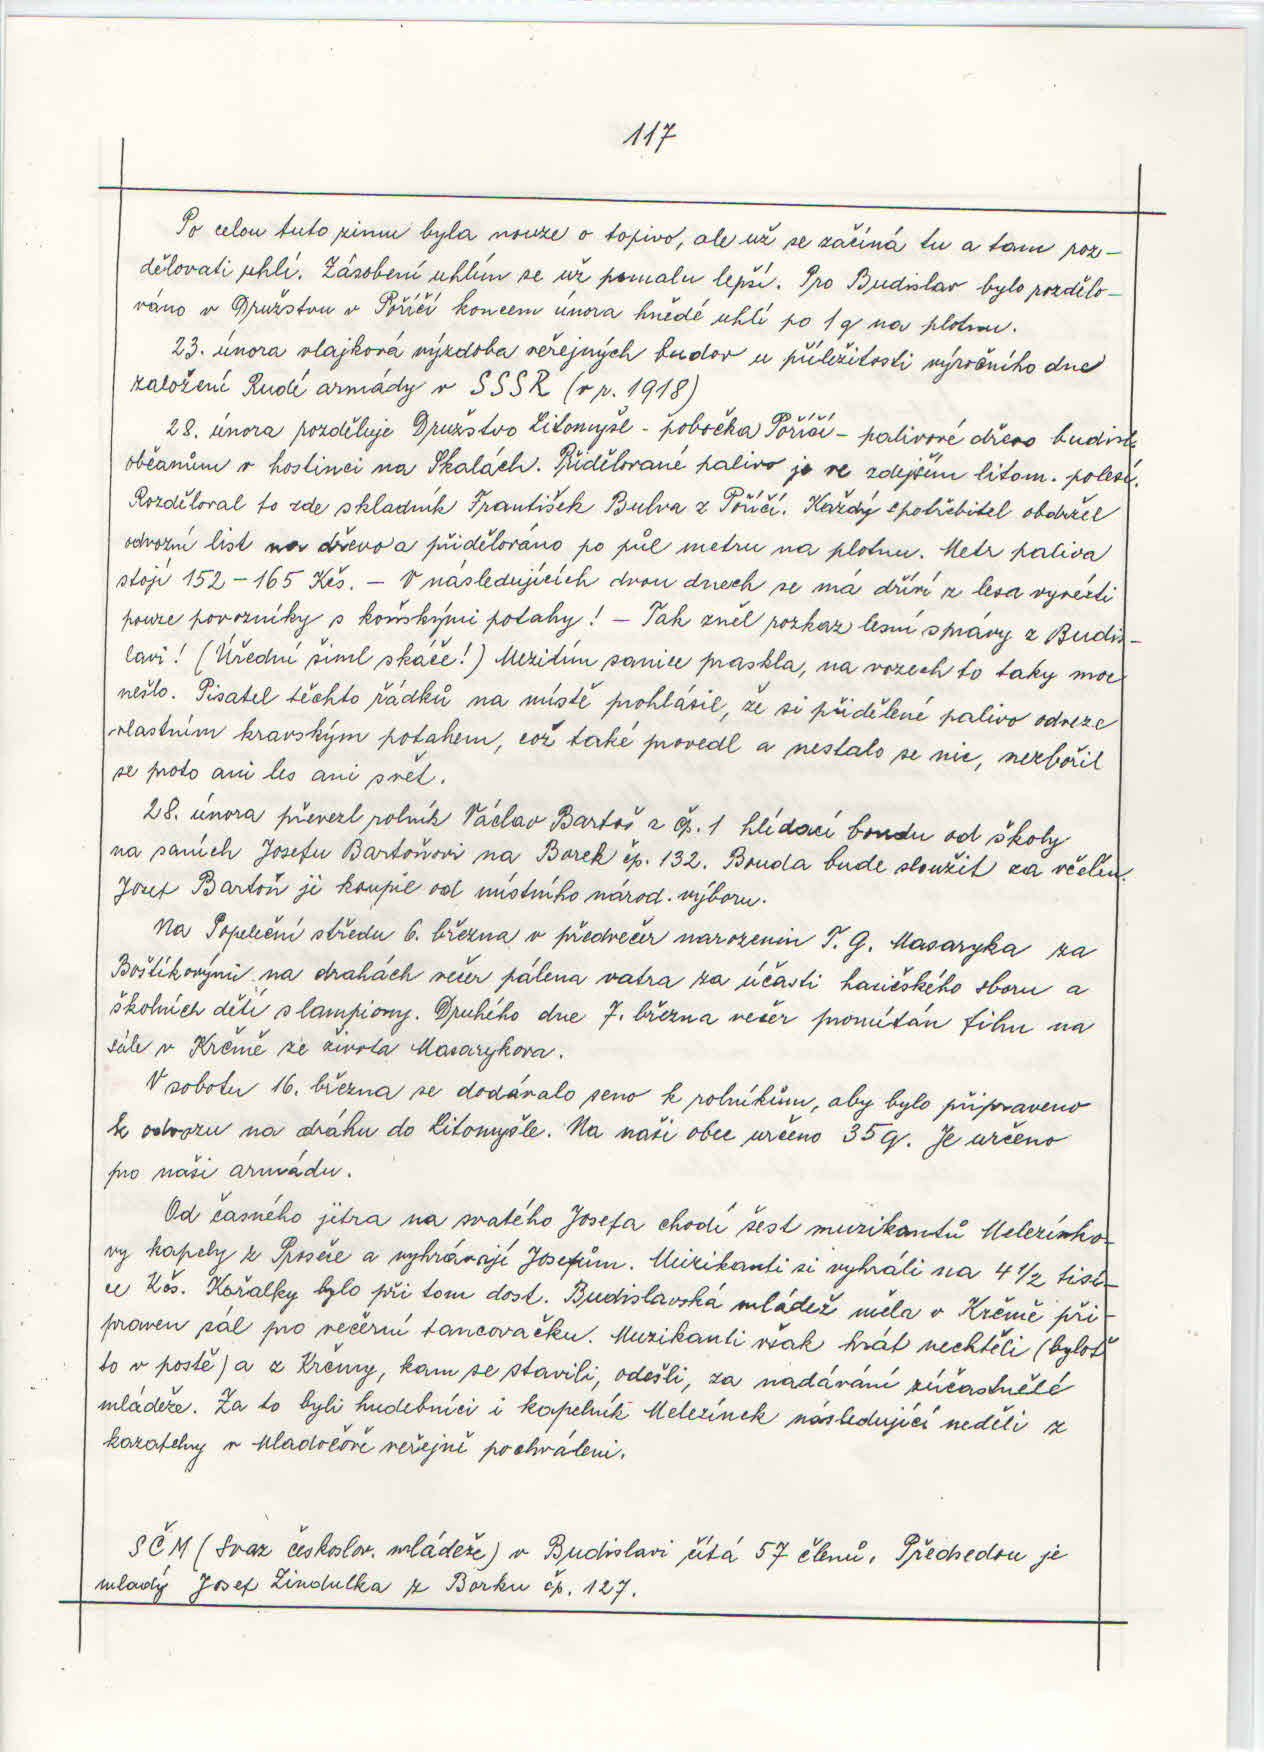 117
Po celou tuto zimu byla nouze o topivo, ale už se začíná tu a tam roz-
dělovati uhlí. Zásobení uhlím se už pomalu lepší. Pro Budislav bylo rozdělo-
váno v Družstvu v Poříčí koncem února hnědé uhlí po 1 q na plotnu.
23. února vlajková výzdoba veřejných budov u příležitosti výročního dne
založení Rudé armády v SSSR (v r. 1918)
28. února rozděluje Družstvo Litomyšl - pobočka Poříčí - palivové dřevo budisl.
občanům v hostinci na Skalách. Přidělované palivo je ve zdejším litom. polesí.
Rozděloval to zde skladník František Bulva z Poříčí. Každý spotřebitel obdržel
odvozní list na dřevo a přidělováno po půl metru na plotnu. Metr paliva
stojí 152 - 165 Kčs. - V následujících dvou dnech se má dříví z lesa vyvézti
pouze povozníky s koňskými potahy! - Tak zněl rozkaz lesní správy z Budis-
lavi! (Úřední šiml skáče!) Mezitím sanice praskla, na vozech to taky moc
nešlo. Pisatel těchto řádků na místě prohlásil, že si přidělené palivo odveze
vlastním kravským potahem, což také provedl a nestalo se nic, nezbořil
se proto ani les ani svět.
28. února převezl rolník Václav Bartoš z čp. 1 hlídací boudu od školy
na saních Josefu Bartoňovi na Borek čp. 132. Bouda bude sloužit za včelín.
Josef Bartoň ji koupil od místního národ. výboru.
Na Popeleční středu 6. března v předvečer narozenin T. G. Masaryka za
Boštíkovými na drahách večer pálena vatra za účasti hasičského sboru a
školních dětí s lampiony. Druhého dne 7. března večer promítán film na
sále v Krčmě ze života Masarykova.
V sobotu 16. března se dodávalo seno k rolníkům, aby bylo připraveno
k odvozu na dráhu do Litomyšle. Na naši obec určeno 35 q. Je určeno
pro naši armádu.
Od časného jitra na svatého Josefa chodí šest muzikantů Melezínko-
vy kapely z Proseče a vyhrávají Josefům. Muzikanti si vyhráli na 4 1/2 tisí-
ce Kčs. Kořalky bylo při tom dost. Budislavská mládež měla v Krčmě při-
praven sál pro večerní tancovačku. Muzikanti však hrát nechtěli (bylo
to v postě) a z Krčmy, kam se stavili, odešli, za nadávání zúčastnělé
mládeže. Za to byli hudebníci i kapelník Melezínek následující neděli z
kazatelny v Mladočově veřejně pochváleni.
SČM (Svaz českoslov. mládeže) v Budislavi čítá 57 členů. Předsedou je
mladý Josef Zindulka z Borku čp. 127.